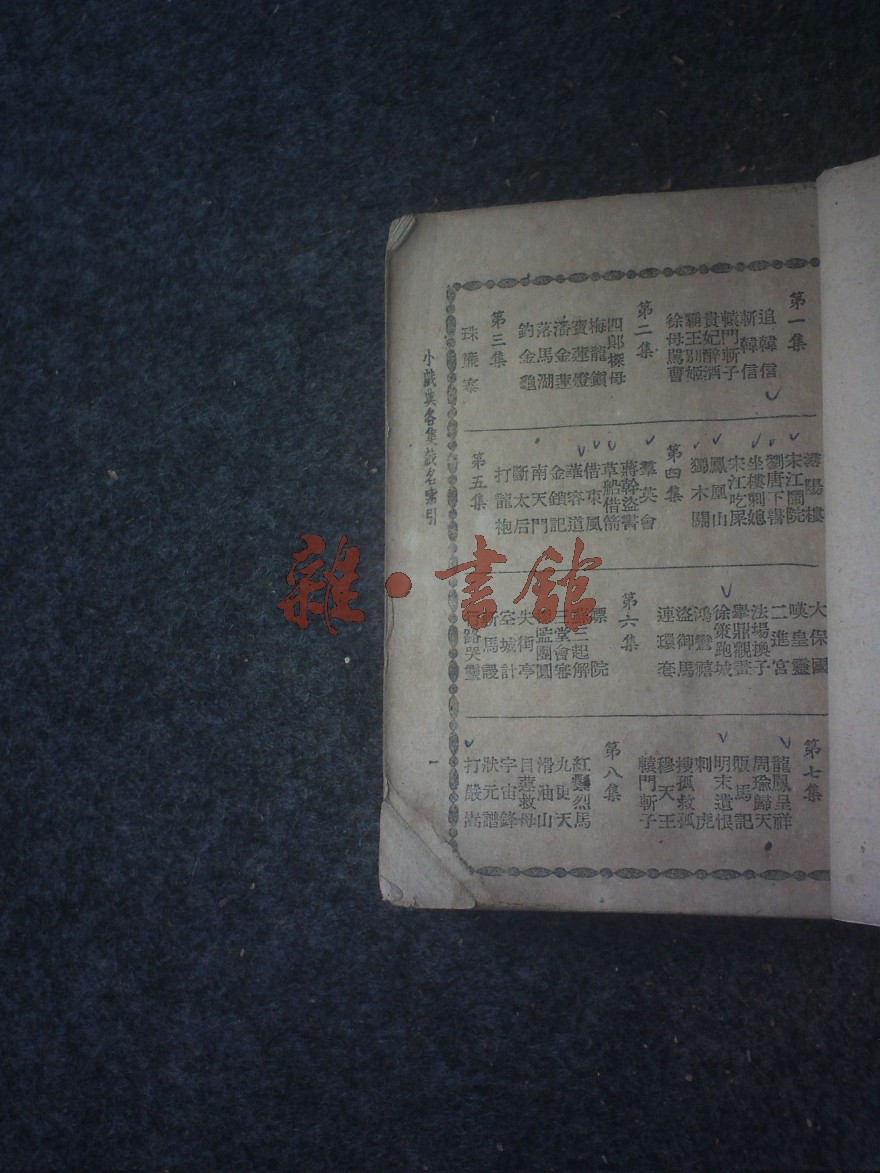 第一集
追韓信
斬韓信
轅門斬子
貴妃醉酒
霸王別姬
徐母罵曹
第二集
四郎探母
梅龍鎮
寶蓮燈
潘金蓮
落馬湖
釣金龜
第三集
珠簾寨
潯陽樓
宋江鬧院
劉唐下書
坐樓刺媳
宋江吃屎
鳳凰山
獨木關
第四集
羣英會
蔣幹盜書
草船借箭
借東風
華容道
金鎖記
南天門
斷太后
打龍袍
第五集
大保國
嘆皇靈
二進宮
法場換子
舉鼎觀畫
徐策跑城
鴻鸞禧
盜御馬
連環套
第六集
嫖院
起解
三堂會審
監團圓
失街亭
空城計
斬馬謖
路哭靈
第七集
龍鳳呈祥
周瑜歸天
販馬記
明末遺恨
刺虎
搜孤救孤
穆天王
轅門斬子
第八集
紅鬃烈馬
九更天
滑油山
目蓮救母
宇宙鋒
狀元譜
打嚴嵩
小戲典各集戲名索引
一
雜·書館